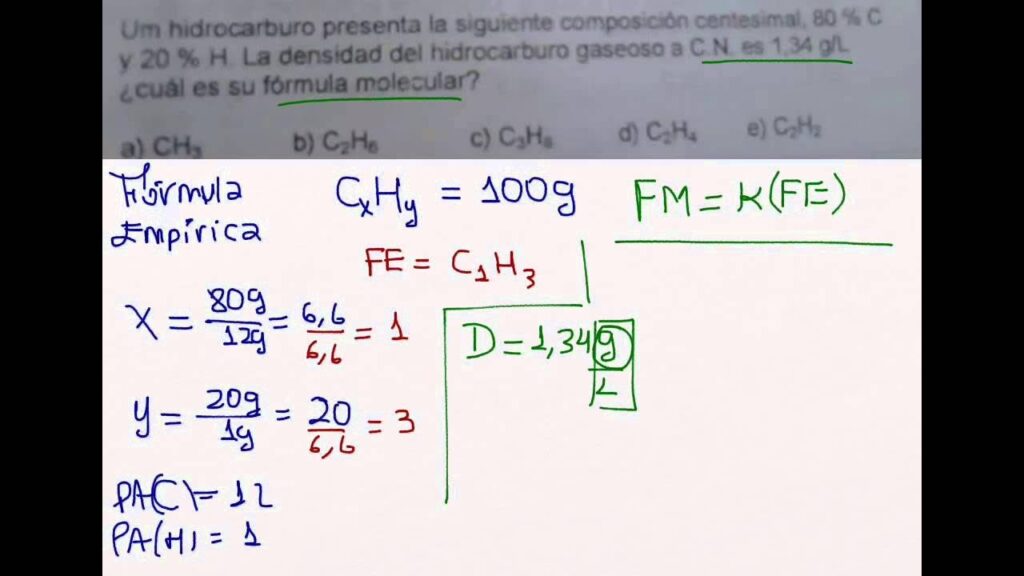 Um hidrocarburo presenta la siguiente composición centesimal, 80 % C
y 20 % H. La densidad del hidrocarburo gaseoso a C.N. es 1,34 g/L
¿cuál es su fórmula molecular?
a) CH3 b) C2H6 c) C3H8 d) C2H4 e) C2H2
Fórmula
Empírica
CxHy = 100g
FM = K(FE)
FE = C1H3
X = 80g/12g = 6,6/6,6 = 1
D = 1,34 g/L
y = 20g/1g = 20/6,6 = 3
PA(C) = 12
PA(H) = 1